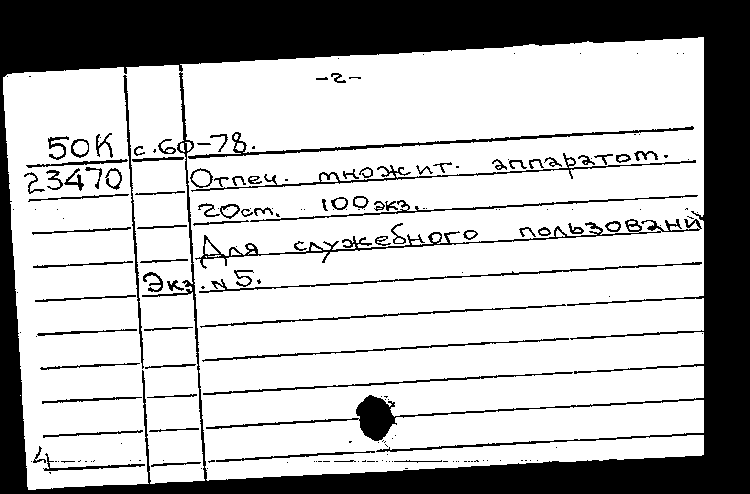 -2-
50К с.60-78.
23470 Отпеч. множит. аппаратом.
20ст. 100экз.
Для служебного пользовани
Экз. N 5.
4